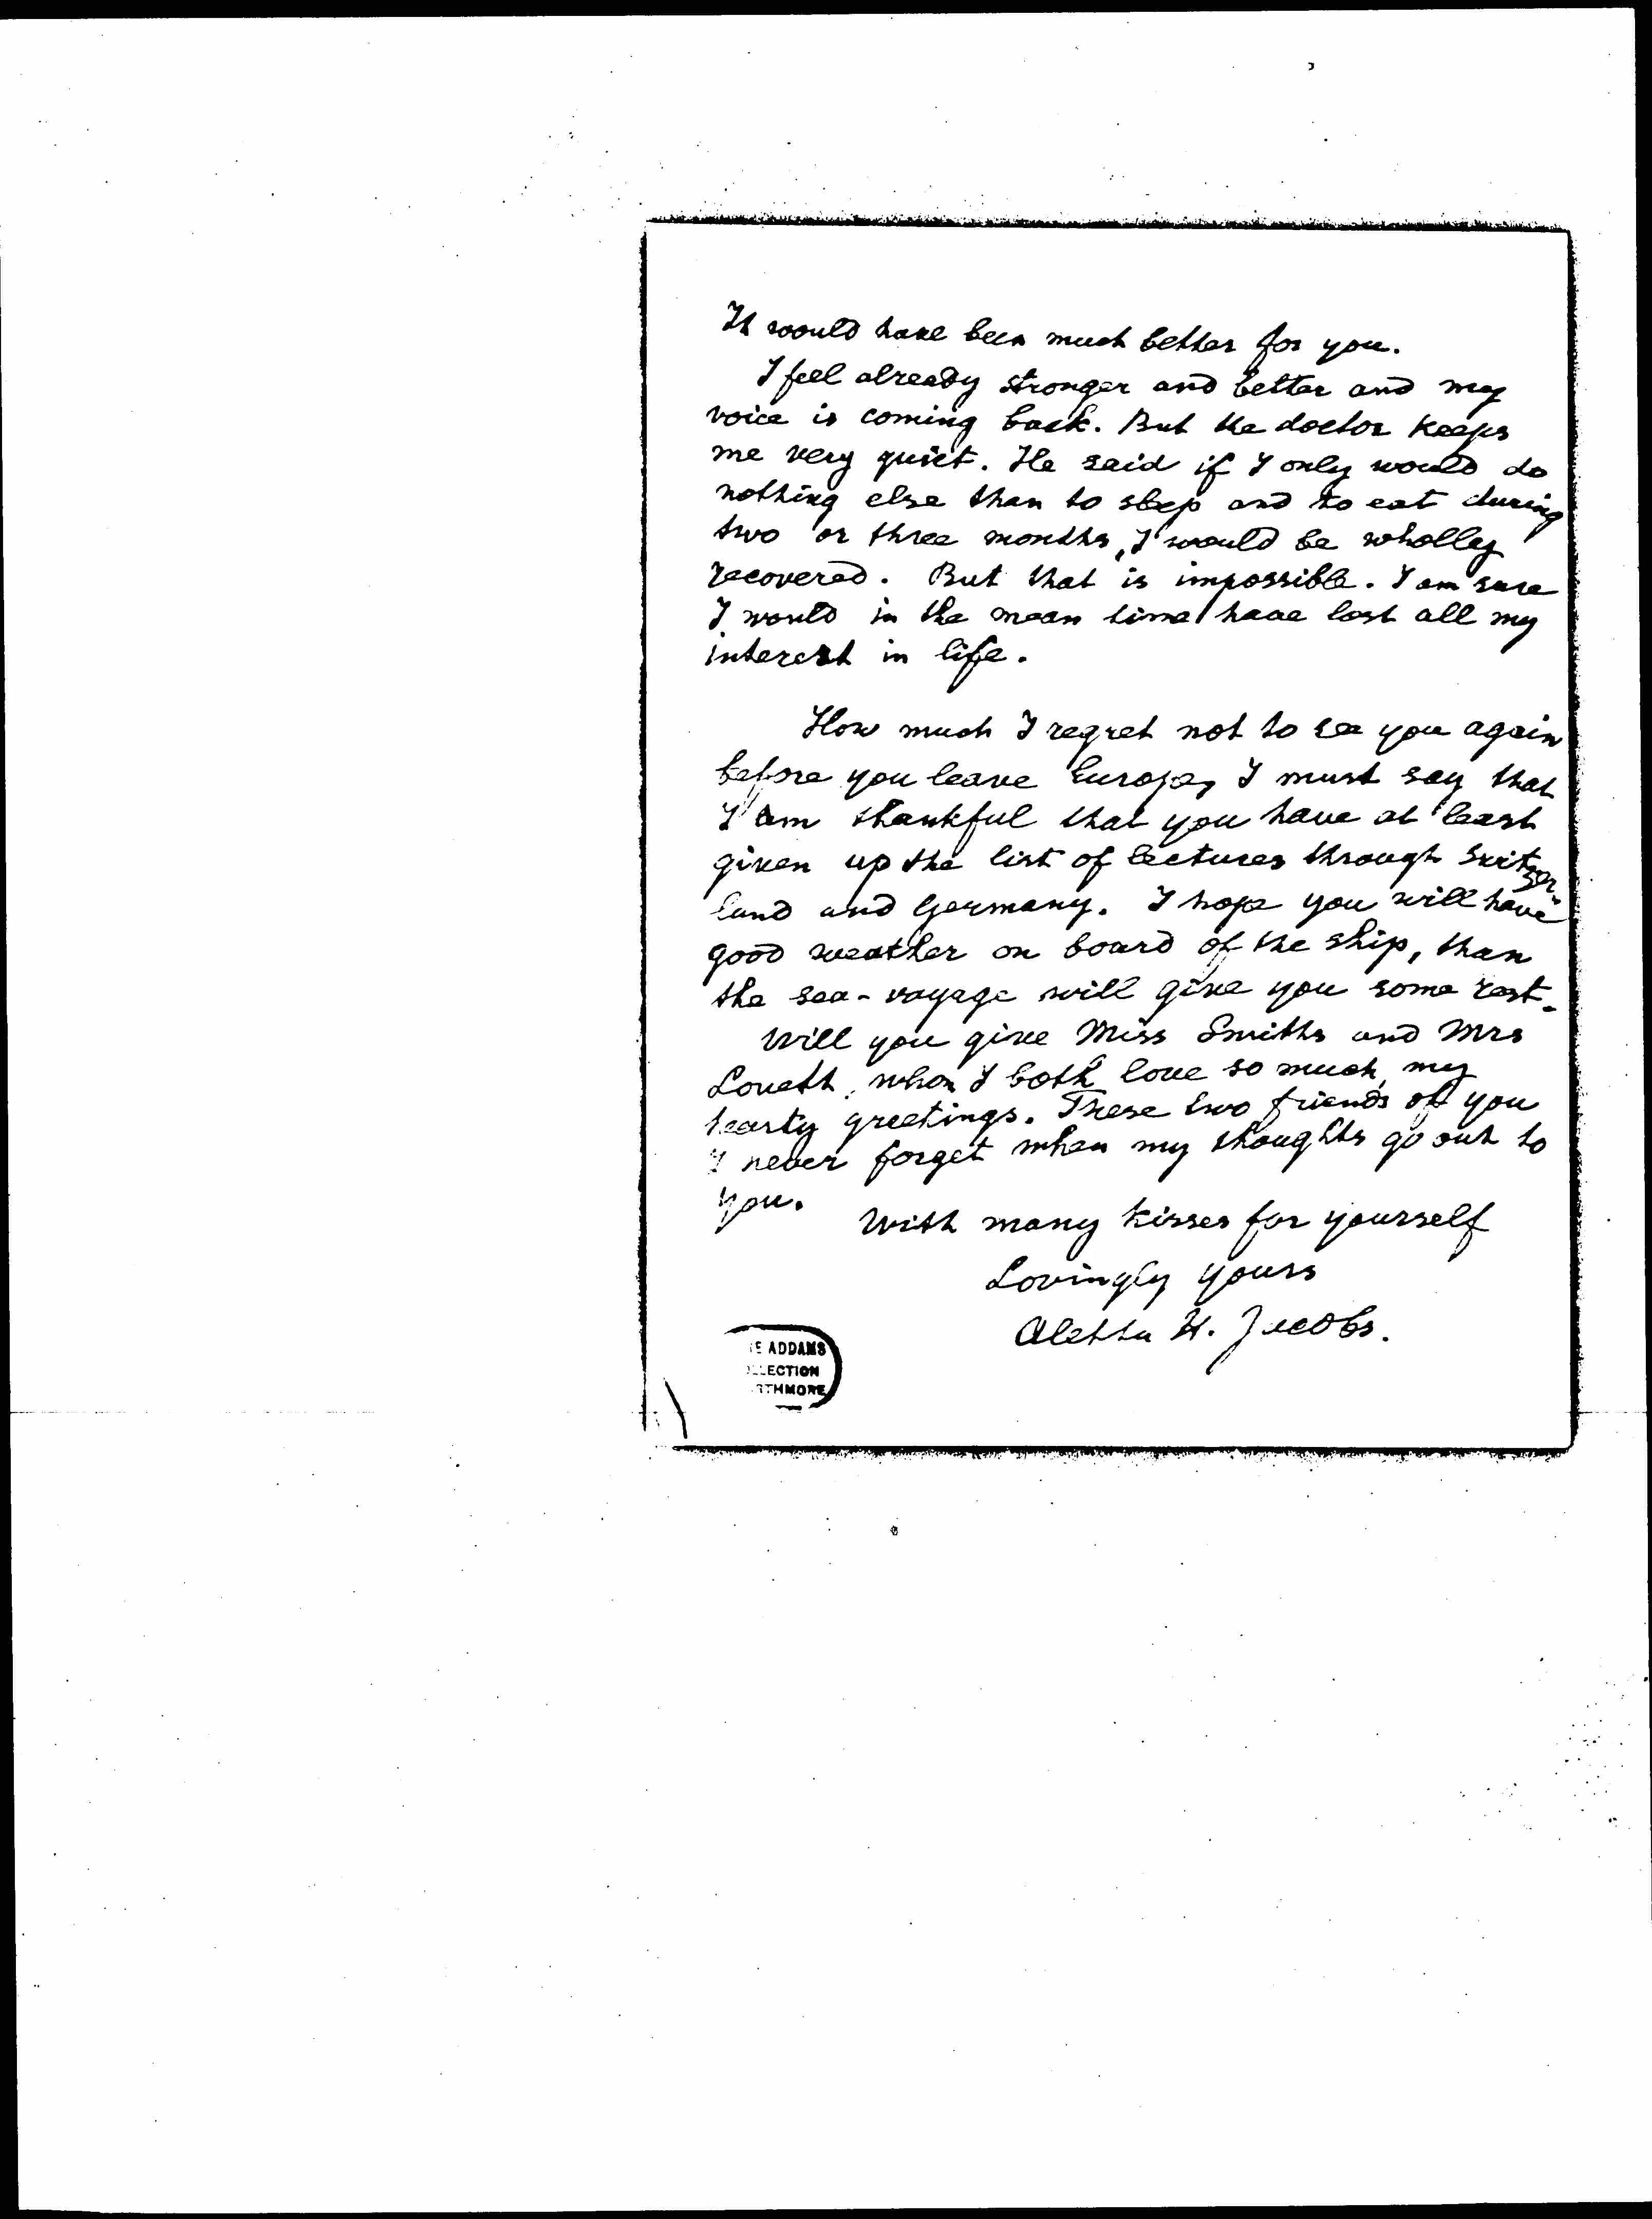 It would have been much better for you.
I feel already stronger and better and my
voice is coming back. But the doctor keeps
me very quiet. He said if I only would do
nothing else than to sleep and to eat during
two or three months, I would be wholly
recovered. But that is impossible. I am sure
I would in the mean time have lost all my
interest in life.
How much I regret not to see you again
before you leave Europe, I must say that
I am thankful that you have at least
given up the list of lectures through Switzer-
land and Germany. I hope you will have
good weather on board of the ship, than
the sea-voyage will give you some rest.
Will you give Miss Smiths and Mrs
Loveth, whon I both love so much, my
hearty greetings. These two friends of you
I never forget when my thoughts go out to
you.
With many kisses for yourself
Lovingly yours
Aletta H. Jacobs.
E ADDAMS
LLECTION
RTHMORE